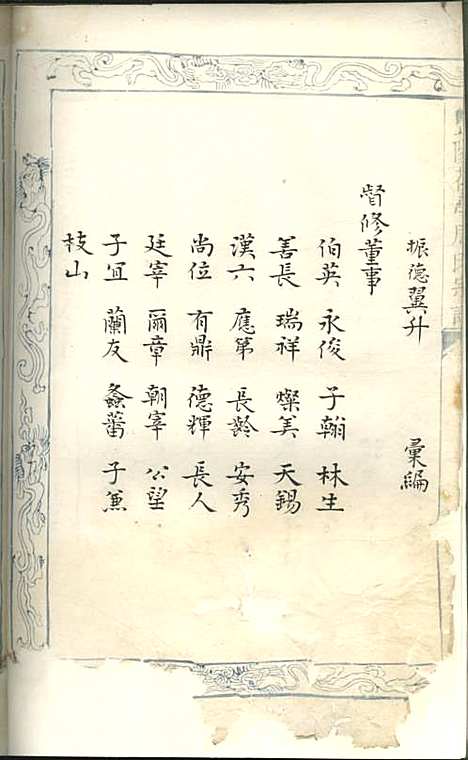 振德翼升 彙編
督修董事
伯英 永俊 子翰 林生
善長 瑞祥 燦美 天錫
漢六 應第 長齡 安秀
尚位 有鼎 德輝 長人
廷宰 爾章 朝宰 公望
子宜 蘭友 螽蕃 子兼
枝山